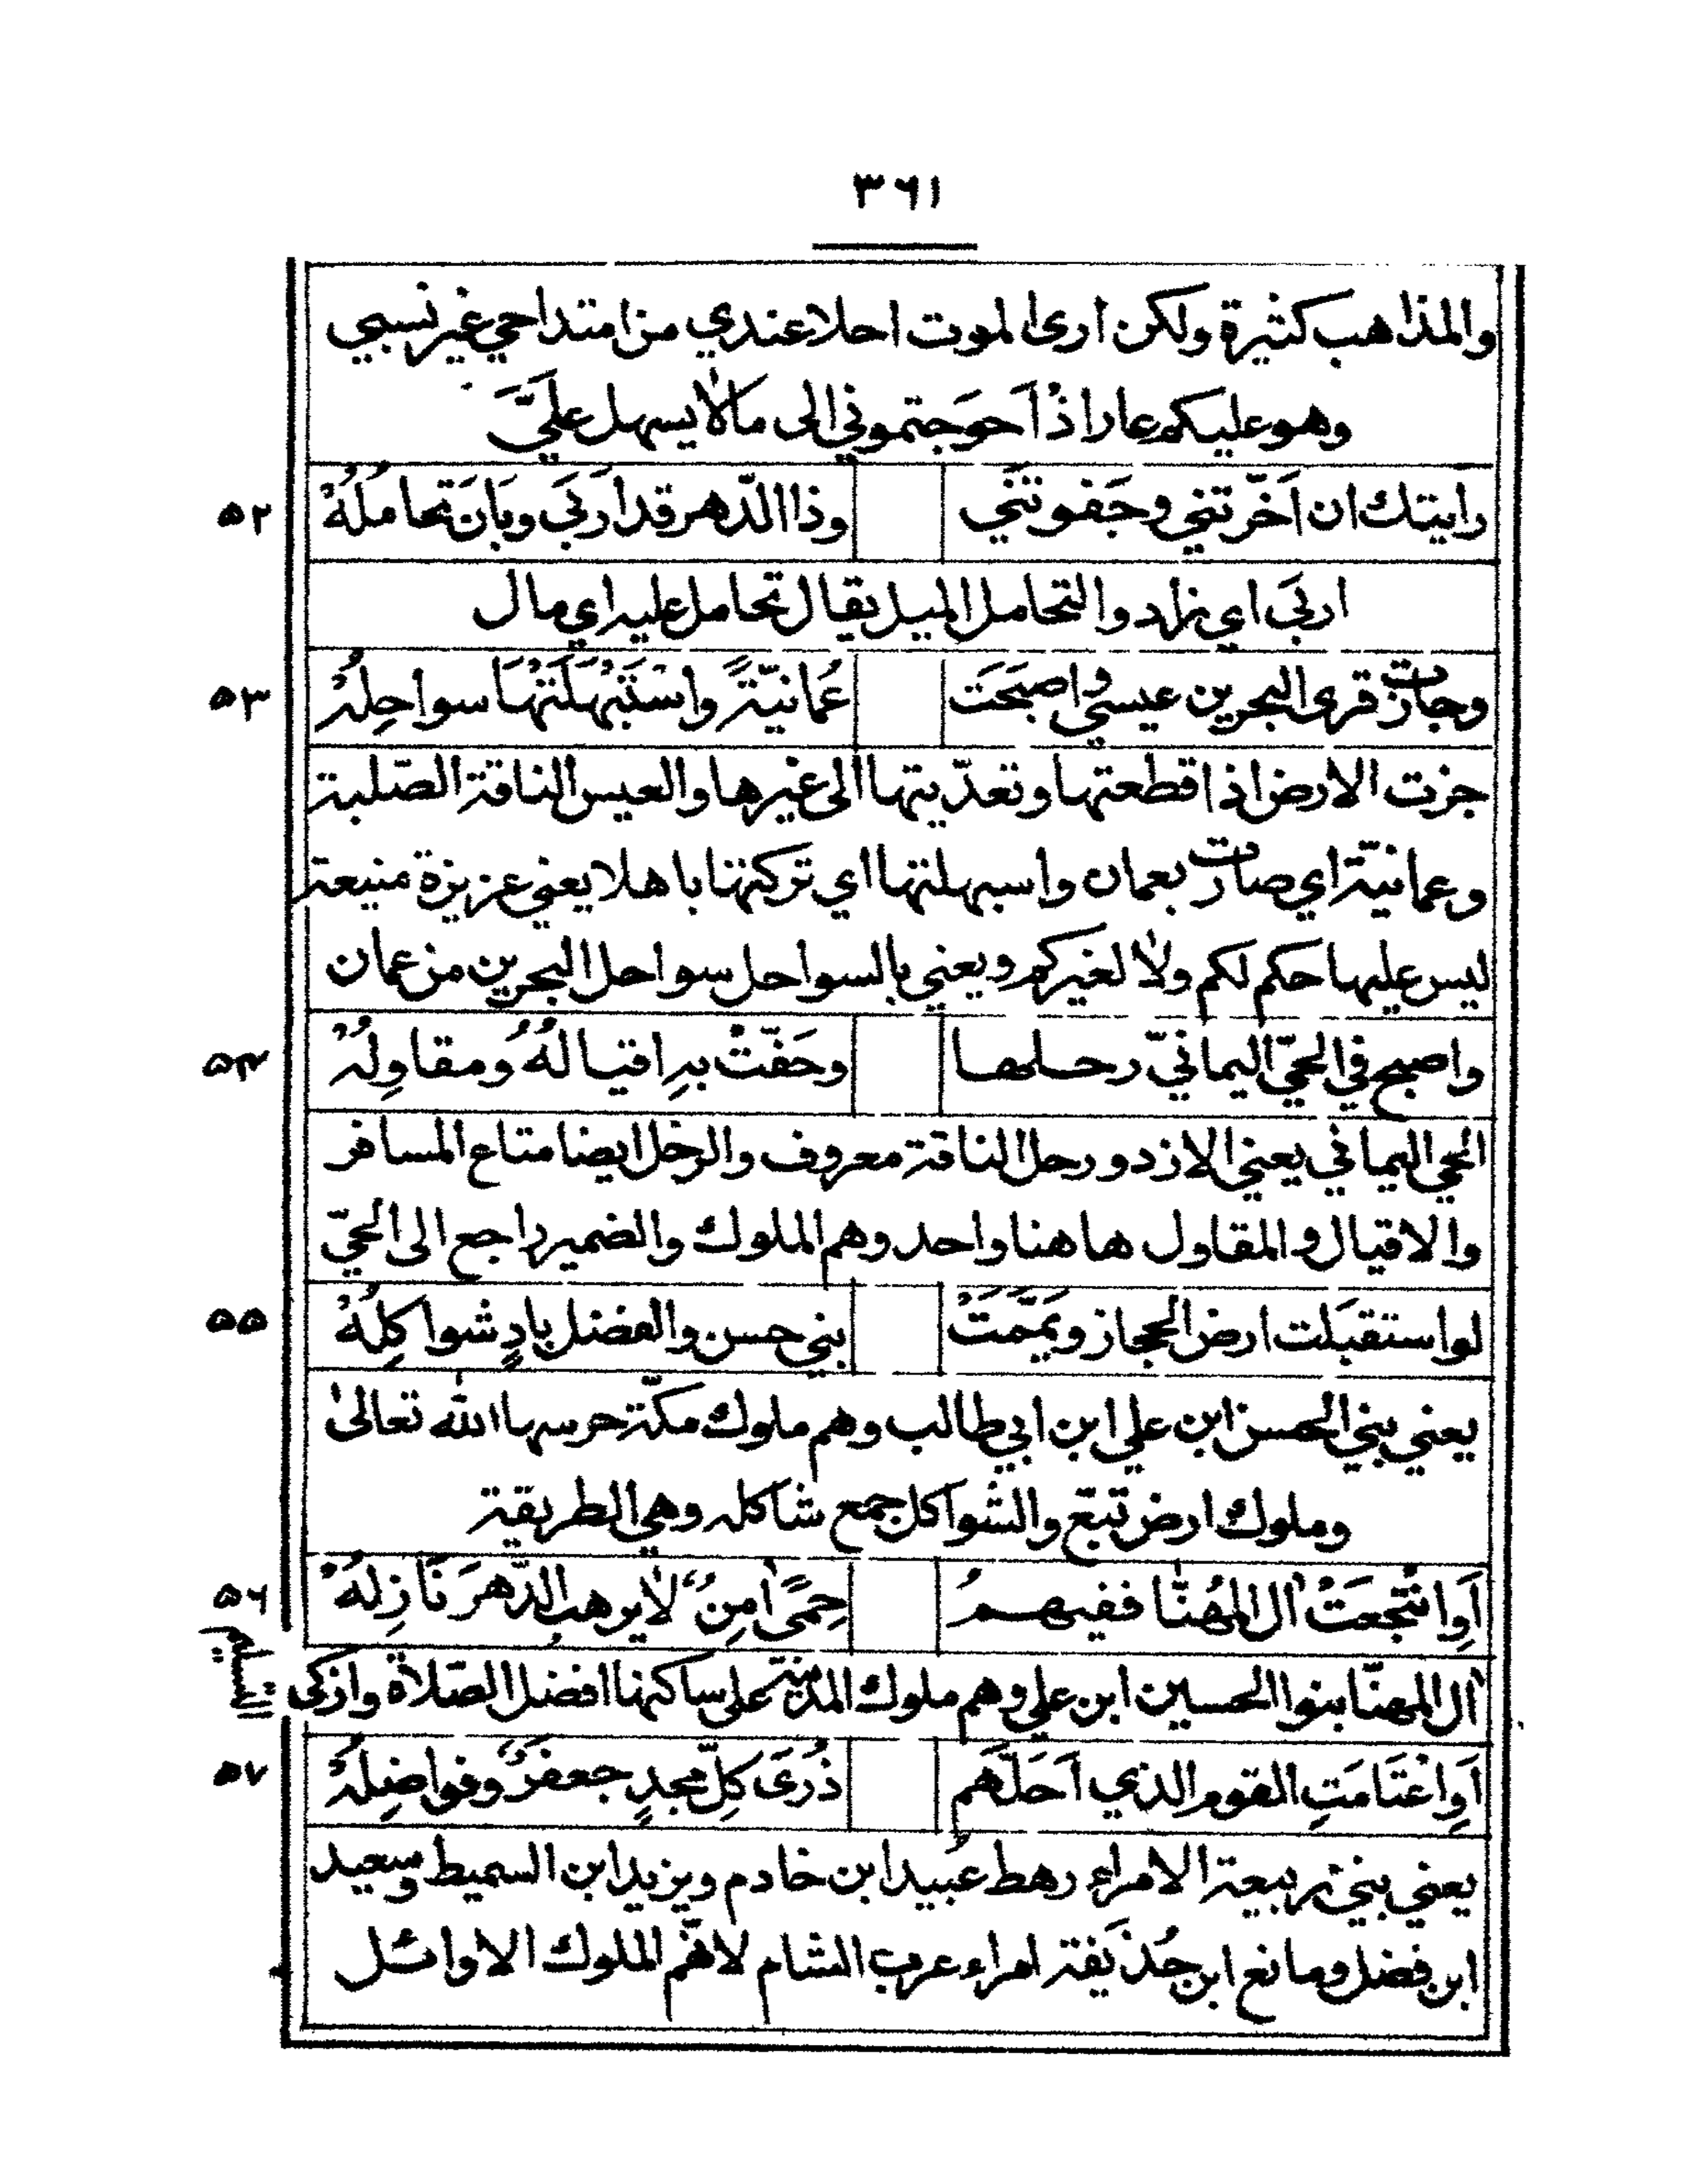 ٣٦١
والمذاهب كثيرة ولكن ارى الموت احلا عندي من امتداحي غير نسيبي
وهو عليكم عار اذْ اَحوَجتموني الى مالا يسهل علَيَّ
رايتك ان اَخّرتني وجَفوتَني وذا الدّهر قد ارَبَى وبَانَ تحامُلُهُ ۵۲
اربَى اي زاد والتحامل الميل يقال تحامل عليه اي مال
وجازت قرى البحرين عيسي واصبَحَت عُمانيّةً واسْتَبْهَلَتْهَا سواحِلُهْ ۵۳
جزت الارض اذا قطعتها وتعدّيتها الى غيرها والعيس الناقة الصّلبة
وعمانيّة اي صارت بعمان واسبهلتها اي تركتها باهلا يعني عزيزة منيعة
ليس عليها حكم لكم ولا لغيركم ويعني بالسواحل سواحل البحرين من عمان
واصبح في الحيّ اليمانيّ رحلها وحَفّتْ بهِ اقيالُهُ ومقاوِلُهْ ۵۴
الحي اليماني يعني الازد ورحل الناقة معروف والرحل ايضا متاع المسافر
والاقيال والمقاول هاهنا واحد وهم الملوك والضمير راجع الى الحيّ
لو استقبَلَت ارض الحجاز ويَمّمَتْ بني حسن والفضل بادٍ شواكِلُهْ ۵۵
يعني بني الحسن ابن علي ابن ابي طالب وهم ملوك مكّة حرسها الله تعالى
وملوك ارض تبّع والشواكل جمع شاكله وهي الطريقة
اَوِ انتَجعَتْ آل المُهنّا ففيهمُ حِمًى آمِنٌ لا يرهب الدّهرَ نَازِلهُ ۵۶
آل المهنّا بنوا الحسين ابن علي وهم ملوك المدينة على ساكنها افضل الصّلاة وازكى
التسليم
اَوِ اعْتَامَتِ القوم الذي اَحَلّهم ذُرَى كلِّ مجدٍ جعفرٌ وفواضِلُهْ ۵۷
يعني بني ربيعة الامراء رهط عُبيد ابن خادم ويزيد ابن السميط وسعيد
ابن فضل ومانع ابن حُذَيفة امراء عرب الشام لانّهم الملوك الاوائل